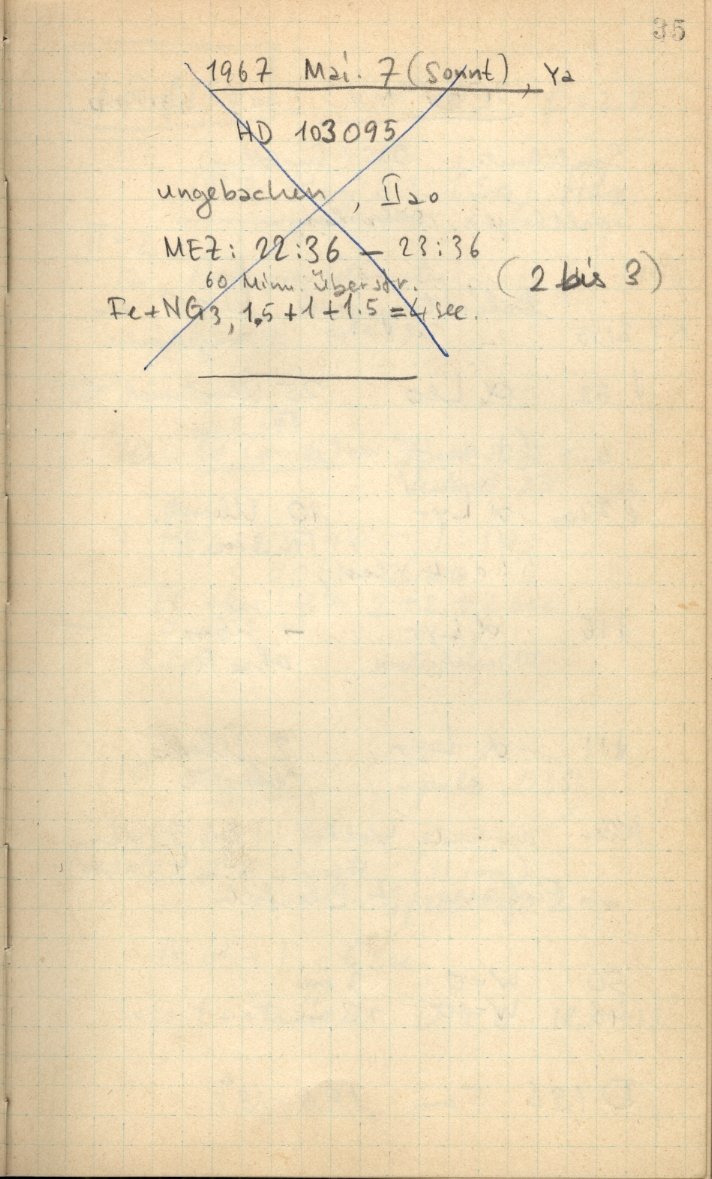 35
1967 Mai. 7 (Sonnt), Ya
HD 103095
ungebachen, IIa0
MEZ: 22:36 – 23:36
60 Min. Überstr.
(2 bis 3)
Fe+NG3, 1,5+1+1.5 = 4 sec.